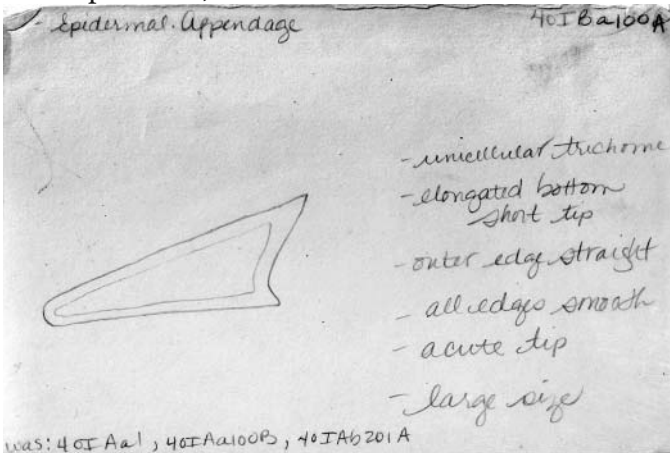 Epidermal Appendage
40IBa100A
- unicellular trichome
- elongated bottom
short tip
- outer edge straight
- all edges smooth
- acute tip
- large size
was: 40IAa1, 40IAa100B, 40IAb201A